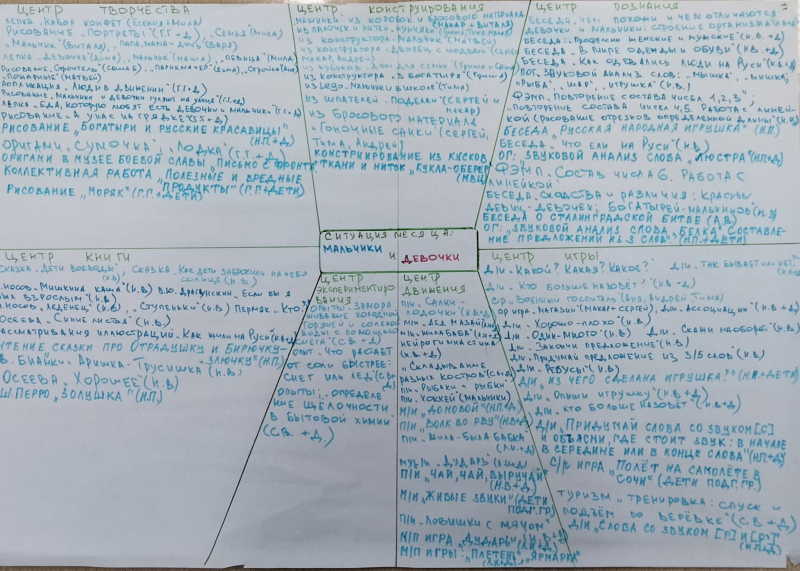 ЦЕНТР ТВОРЧЕСТВА
ЛЕПКА „НАБОР КОНФЕТ" (ЕСЕНИЯ+МИЛА)
РИСОВАНИЕ „ПОРТРЕТЫ" (Г.Г.+Д), „СЕМЬЯ (МИЛА)
„МАЛЬЧИК (ВИТАЛЯ), „ПАПА, МАМА-ДОЧЬ (ВАРЯ)
ЛЕПКА „ДЕВОЧКА (ДИМА), „МАЛЬЧИК (МАША), „ПЕВИЦА (МИЛА)
РИСОВАНИЕ „СТРОИТЕЛЬ (САША Е), „ПАРИКМАХЕР (ДИМА),
„ПОЖАРНЫЕ" (МАТВЕЙ)
АППЛИКАЦИЯ „ЛЮДИ В ДВИЖЕНИИ" (Г.Г.+Д)
РИСОВАНИЕ „МАЛЬЧИКИ И ДЕВОЧКИ ГУЛЯЮТ НА УЛИЦЕ (Г.Г.+Д)
ЛЕПКА „ЕДА, КОТОРУЮ МОГУТ ЕСТЬ ДЕВОЧКИ И МАЛЬЧИКИ" (Г.Г.+Д)
РИСОВАНИЕ „А У НАС НА ГРЯДКЕ" (Г.Г.+Д)
РИСОВАНИЕ „БОГАТЫРИ И РУССКИЕ КРАСАВИЦЫ"
(Н.П.+Д)
ОРИГАМИ „СУМОЧКА", „ЛОДКА" (Г.Г.+Д)
ОРИГАМИ В МУЗЕЕ БОЕВОЙ СЛАВЫ „ПИСЬМО С ФРОНТА"
КОЛЛЕКТИВНАЯ РАБОТА „ПОЛЕЗНЫЕ И ВРЕДНЫЕ
ПРОДУКТЫ" (Г.Г.+ДЕТИ)
РИСОВАНИЕ „МОРЯК" (Г.Г.+ДЕТИ)
ЦЕНТР КОНСТРУИРОВАНИЯ
МАШИНКИ ИЗ КОРОБОК И БРОСОВОГО МАТЕРИАЛА
(МАКАР+ВИТАЛЯ)
ИЗ ПАЛОЧЕК И НИТЕЙ
ИЗ КОНСТРУКТОРА МАЛЬЧИК (МАТВЕЙ)
ИЗ КОНСТРУКТОРА ДВОРЕЦ С ЛЮДЬМИ
МАКАР, АНДРЕЙ)
ИЗ КУБИКОВ ДОМ ДЛЯ СЕМЬИ
ИЗ КОНСТРУКТОРА „3 БОГАТЫРЯ"
ИЗ LEGO „МАЛЬЧИКИ В ШКОЛЕ" (ТИМА)
ИЗ ШПАТЕЛЕЙ ПОДЕЛКИ (СЕРГЕЙ И
МАКАР)
ИЗ БРОСОВОГО МАТЕРИАЛА
„ГОНОЧНЫЕ САНКИ" (СЕРГЕЙ,
ТИМА, АНДРЕЙ)
КОНСТРУИРОВАНИЕ ИЗ КУСКОВ
ТКАНИ И НИТОК „КУКЛА-ОБЕРЕГ"
(МВЦ)
ЦЕНТР ПОЗНАНИЯ
БЕСЕДА „ЧЕМ ПОХОЖИ И ЧЕМ ОТЛИЧАЮТСЯ
ДЕВОЧКИ И МАЛЬЧИКИ: СТРОЕНИЕ ОРГАНИЗМА"
БЕСЕДА: „ПРОФЕССИИ ЖЕНСКИЕ И МУЖСКИЕ" (Н.В.+Д)
БЕСЕДА „В МИРЕ ОДЕЖДЫ И ОБУВИ" (Н.В.+Д)
БЕСЕДА „КАК ОДЕВАЛИСЬ ЛЮДИ НА РУСИ"
ПОГ. ЗВУКОВОЙ АНАЛИЗ СЛОВ: „МЫШКА", „МИШКА",
„РЫБА", „ШАР", „ИГРУШКА" (Н.В.)
ФЭМП „ПОВТОРЕНИЕ СОСТАВА ЧИСЕЛ 1, 2, 3";
„ПОВТОРЕНИЕ СОСТАВА ЧИСЕЛ 4, 5. РАБОТА С ЛИНЕЙ-
КОЙ (РИСОВАНИЕ ОТРЕЗКОВ ОПРЕДЕЛЕННОЙ ДЛИНЫ) (Н.В.)
БЕСЕДА „РУССКАЯ НАРОДНАЯ ИГРУШКА" (Н.П.)
БЕСЕДА „ЧТО ЕЛИ НА РУСИ" (Н.В.)
ОГ: ЗВУКОВОЙ АНАЛИЗ СЛОВА „ЛЮСТРА" (Н.П.+Д)
ФЭМП. СОСТАВ ЧИСЛА 6, РАБОТА С
ЛИНЕЙКОЙ"
БЕСЕДА „СХОДСТВА И РАЗЛИЧИЯ: КРАСНЫ
ДЕВИЦ-ДЕВОЧЕК; БОГАТЫРЕЙ-МАЛЬЧИКОВ
БЕСЕДА О СТАЛИНГРАДСКОЙ БИТВЕ (А.В)
ОГ: „ЗВУКОВОЙ АНАЛИЗ СЛОВА „БЕЛКА" СОСТАВЛЕ-
НИЕ ПРЕДЛОЖЕНИЙ ИЗ 3 СЛОВ" (Н.П.+ДЕТИ)
СИТУАЦИЯ МЕСЯЦА:
МАЛЬЧИКИ И ДЕВОЧКИ
ЦЕНТР КНИГИ
СКАЗКА „ДЕТИ ВОЕВОДЫ" (Н.В), СКАЗКА „КАК ДЕТИ ЗАБРОСИЛИ НА НЕБО
СОЛНЦЕ (Н.В)
НОСОВ „МИШКИНА КАША" (Н.В) В.Ю. ДРАГУНСКИЙ „ЕСЛИ БЫ Я
БЫЛ ВЗРОСЛЫМ" (Н.В)
Н.НОСОВ „ЛЕДЕНЕЦ" (Н.В), „СТУПЕНЬКИ" (Н.В) ПЕРМЯК „КТО?"
ОСЕЕВА „СИНИЕ ЛИСТЬЯ" (Н.В)
РАССМАТРИВАНИЯ ИЛЛЮСТРАЦИЙ „КАК ЖИЛИ НА РУСИ" (Н.В+Д)
ЧТЕНИЕ СКАЗКИ ПРО ОТРАДУШКУ И БИРЮЧКУ-
ЗЛЮЧКУ" (Н.П)
В. БИАНКИ „АРИШКА-ТРУСИШКА (Н.В.)
ОСЕЕВА „ХОРОШЕЕ" (Н.В)
Ш. ПЕРРО „ЗОЛУШКА" (Н.П.)
ЦЕНТР
ЭКСПЕРИМЕНТИРО
ВАНИЯ
ОПЫТЫ: ЗАМОРА
ЖИВАНИЕ ХОЛОДНОЙ
ГОРЯЧЕЙ И СОЛЕНОЙ
ВОДЫ С ПОМОЩЬЮ
СНЕГА" (С.В.+Д)
ОПЫТ „ЧТО РАСТАЕТ
ОТ СОЛИ БЫСТРЕЕ:
СНЕГ ИЛИ ЛЁД" (С.В+
Д)
ОПЫТЫ: „ОПРЕДЕЛЕ
НИЕ ЩЁЛОЧНОСТИ
В БЫТОВОЙ ХИМИИ
(С.В. +Д)
ЦЕНТР
ДВИЖЕНИЯ
П\И „САЛКИ-
ЛОДОЧКИ
М\И „ДЕД МАЗАЙ"
М\И „ШИЛА БАБКА"
НЕЙРОГИМНАСТИКА
(Н.В.+Д)
„СКЛАДЫВАНИЕ
РАЗНЫХ КОСТРОВ (С.В+Д)
П\И „РЫБАКИ И РЫБКИ
П\И „ХОККЕЙ (МАЛЬЧИКИ)
М\И „ДОМОВОЙ" (Н.П.+Д)
П\И „ВОЛК ВО РВУ" (Н.В+Д)
П\И „ШИЛА-БЫЛА БАБКА
МУЗ/И „ДУДАРЬ"
П\И „ЧАЙ, ЧАЙ, ВЫРУЧАЙ"
(Н.В.+Д)
М\И „ЖИВЫЕ ЗВУКИ" (ДЕТИ
ПОДГ. ГР)
П\И „ЛОВИШКИ С МЯЧОМ"
М/П ИГРА „ДУДАРЬ" (Л.И+Д)
М/П ИГРЫ: „ПЛЕТЕНЬ", „ЯРМАРКА"
(Л.И+Д)
ЦЕНТР ИГРЫ
Д\И „КАКОЙ? КАКАЯ? КАКОЕ?" Д\И „ТАК БЫВАЕТ ИЛИ НЕТ?"
Д\И „КТО БОЛЬШЕ НАЗОВЕТ" (Н.В.+Д)
С.Р „ВОЕННЫЙ ГОСПИТАЛЬ" (АНЯ, АНДРЕЙ, ТИМА)
С.Р ИГРА „МАГАЗИН" (МАКАР+СЕРГЕЙ), Д\И „АССОЦИАЦИИ"
Д\И „ХОРОШО-ПЛОХО" (Н.В)
Д\И „ОДИН-МНОГО" (Н.В) Д\И „СКАЖИ НАОБОРОТ" (Н.В)
Д\И „ЗАКОНЧИ ПРЕДЛОЖЕНИЕ" (Н.В)
Д\И „ПРИДУМАЙ ПРЕДЛОЖЕНИЕ ИЗ 3/5 СЛОВ" (Н.В)
Д\И „РЕБУСЫ" (Н.В)
Д\И „ИЗ ЧЕГО СДЕЛАНА ИГРУШКА?" (Н.В+ДЕТИ)
Д\И „ОПИШИ ИГРУШКУ" (Н.В.+Д)
Д\И „КТО БОЛЬШЕ НАЗОВЕТ" (Н.В+Д)
Д\И „ПРИДУМАЙ СЛОВА СО ЗВУКОМ [С]
И ОБЪЯСНИ, ГДЕ СТОИТ ЗВУК: В НАЧАЛЕ
В СЕРЕДИНЕ ИЛИ В КОНЦЕ СЛОВА" (Н.П+Д)
С/Р ИГРА „ПОЛЁТ НА САМОЛЁТЕ В
СОЧИ" (ДЕТИ ПОДГ. ГР.)
ТУРИЗМ „ТРЕНИРОВКА: СПУСК И
ПОДЪЕМ ПО ВЕРЁВКЕ" (С.В +Д)
Д/И „СЛОВА СО ЗВУКОМ [Р] И [Р']"
(Н.П+Д)